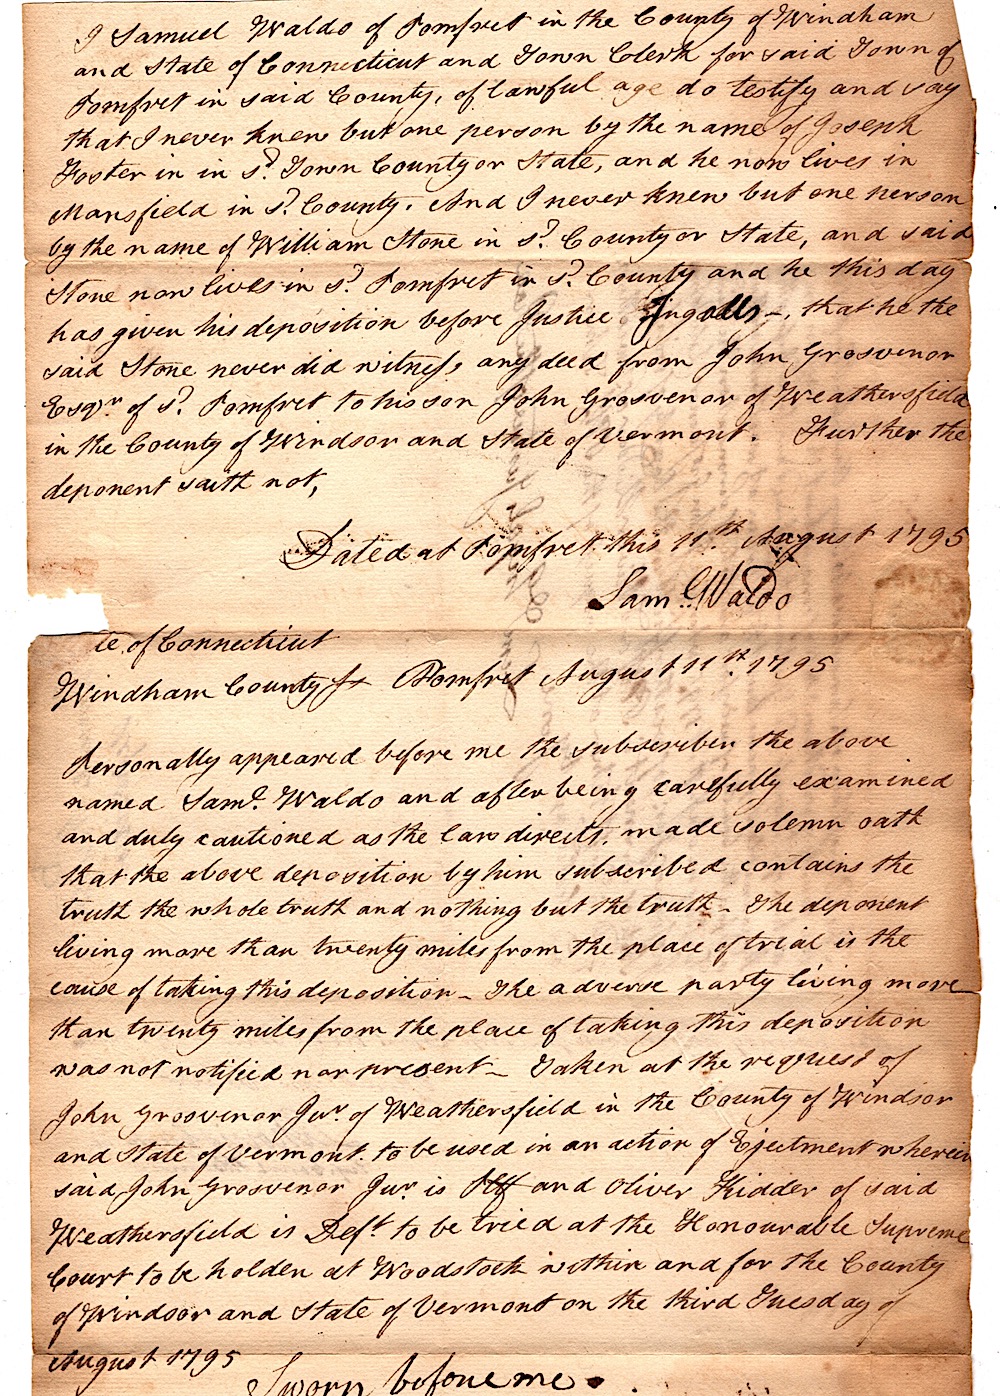 I Samuel Waldo of Pomfret in the County of Windham
and State of Connecticut and Town Clerk for said Town of
Pomfret in said County, of lawful age do testify and say
that I never knew but one person by the name of Joseph
Foster in in sd. Town County or State, and he now lives in
Mansfield in sd. County. And I never knew but one person
by the name of William Stone in sd. County or State, and said
Stone now lives in sd. Pomfret in sd. County and he this day
has given his deposition before Justice Ingalls –, that he the
said Stone never did witness any deed from John Grosvenor
Esqr. of sd. Pomfret to his son John Grosvenor of Weathersfield
in the County of Windsor and State of Vermont. Further the
deponent saith not,
Dated at Pomfret this 11th. August 1795
Saml. Waldo
te of Connecticut
Windham County ss Pomfret August 11th. 1795
Personally appeared before me the subscriber the above
named Saml. Waldo and after being carefully examined
and duly cautioned as the law directs, made solemn oath
that the above deposition by him subscribed contains the
truth the whole truth and nothing but the truth – The deponent
living more than twenty miles from the place of trial is the
cause of taking this deposition – The adverse party living more
than twenty miles from the place of taking this deposition
was not notified nor present – Taken at the request of
John Grosvenor Jur. of Weathersfield in the County of Windsor
and State of Vermont. to be used in an action of Ejectment wherein
said John Grosvenor Jur. is Plff and Oliver Kidder of said
Weathersfield is Deft. to be tried at the Honourable Supreme
Court to be holden at Woodstock within and for the County
of Windsor and State of Vermont on the third Tuesday of
August 1795
Sworn before me.